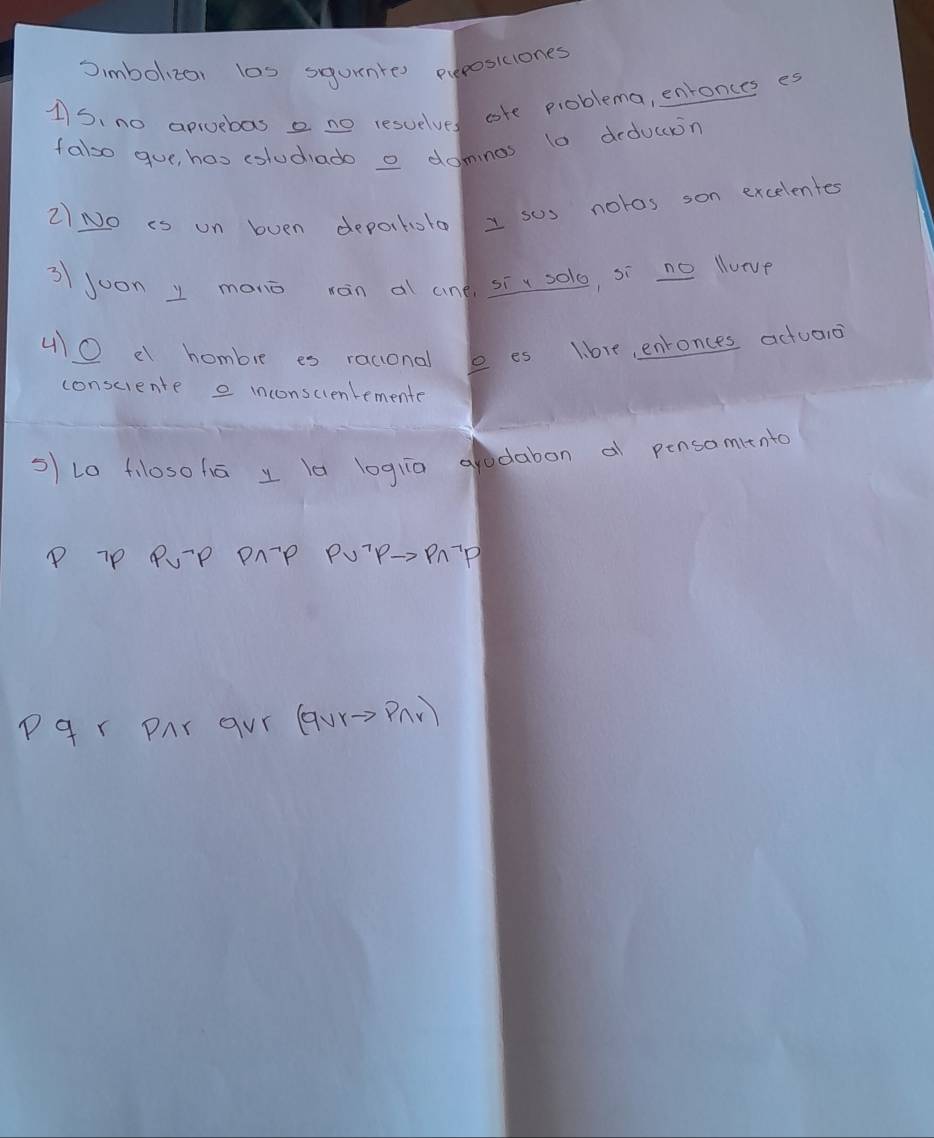 Simbolizar los siguientes preposiciones
1) Si no apruebas o no resuelves este problema, entonces es
falso que, has estudiado o dominas la deducción
2) No es un buen deportista y sus notas son excelentes
3) Juan y maría van al cine, sí y solo, si no llueve
4) O el hombre es racional o es libre, entonces actuará
consciente o inconscientemente
5) La filosofía y la logica ayudaban al pensamiento
P ¬P P∨¬P P∧¬P P∨¬P→P∧¬P
P q r P∧r q∨r (q∨r→P∧r)